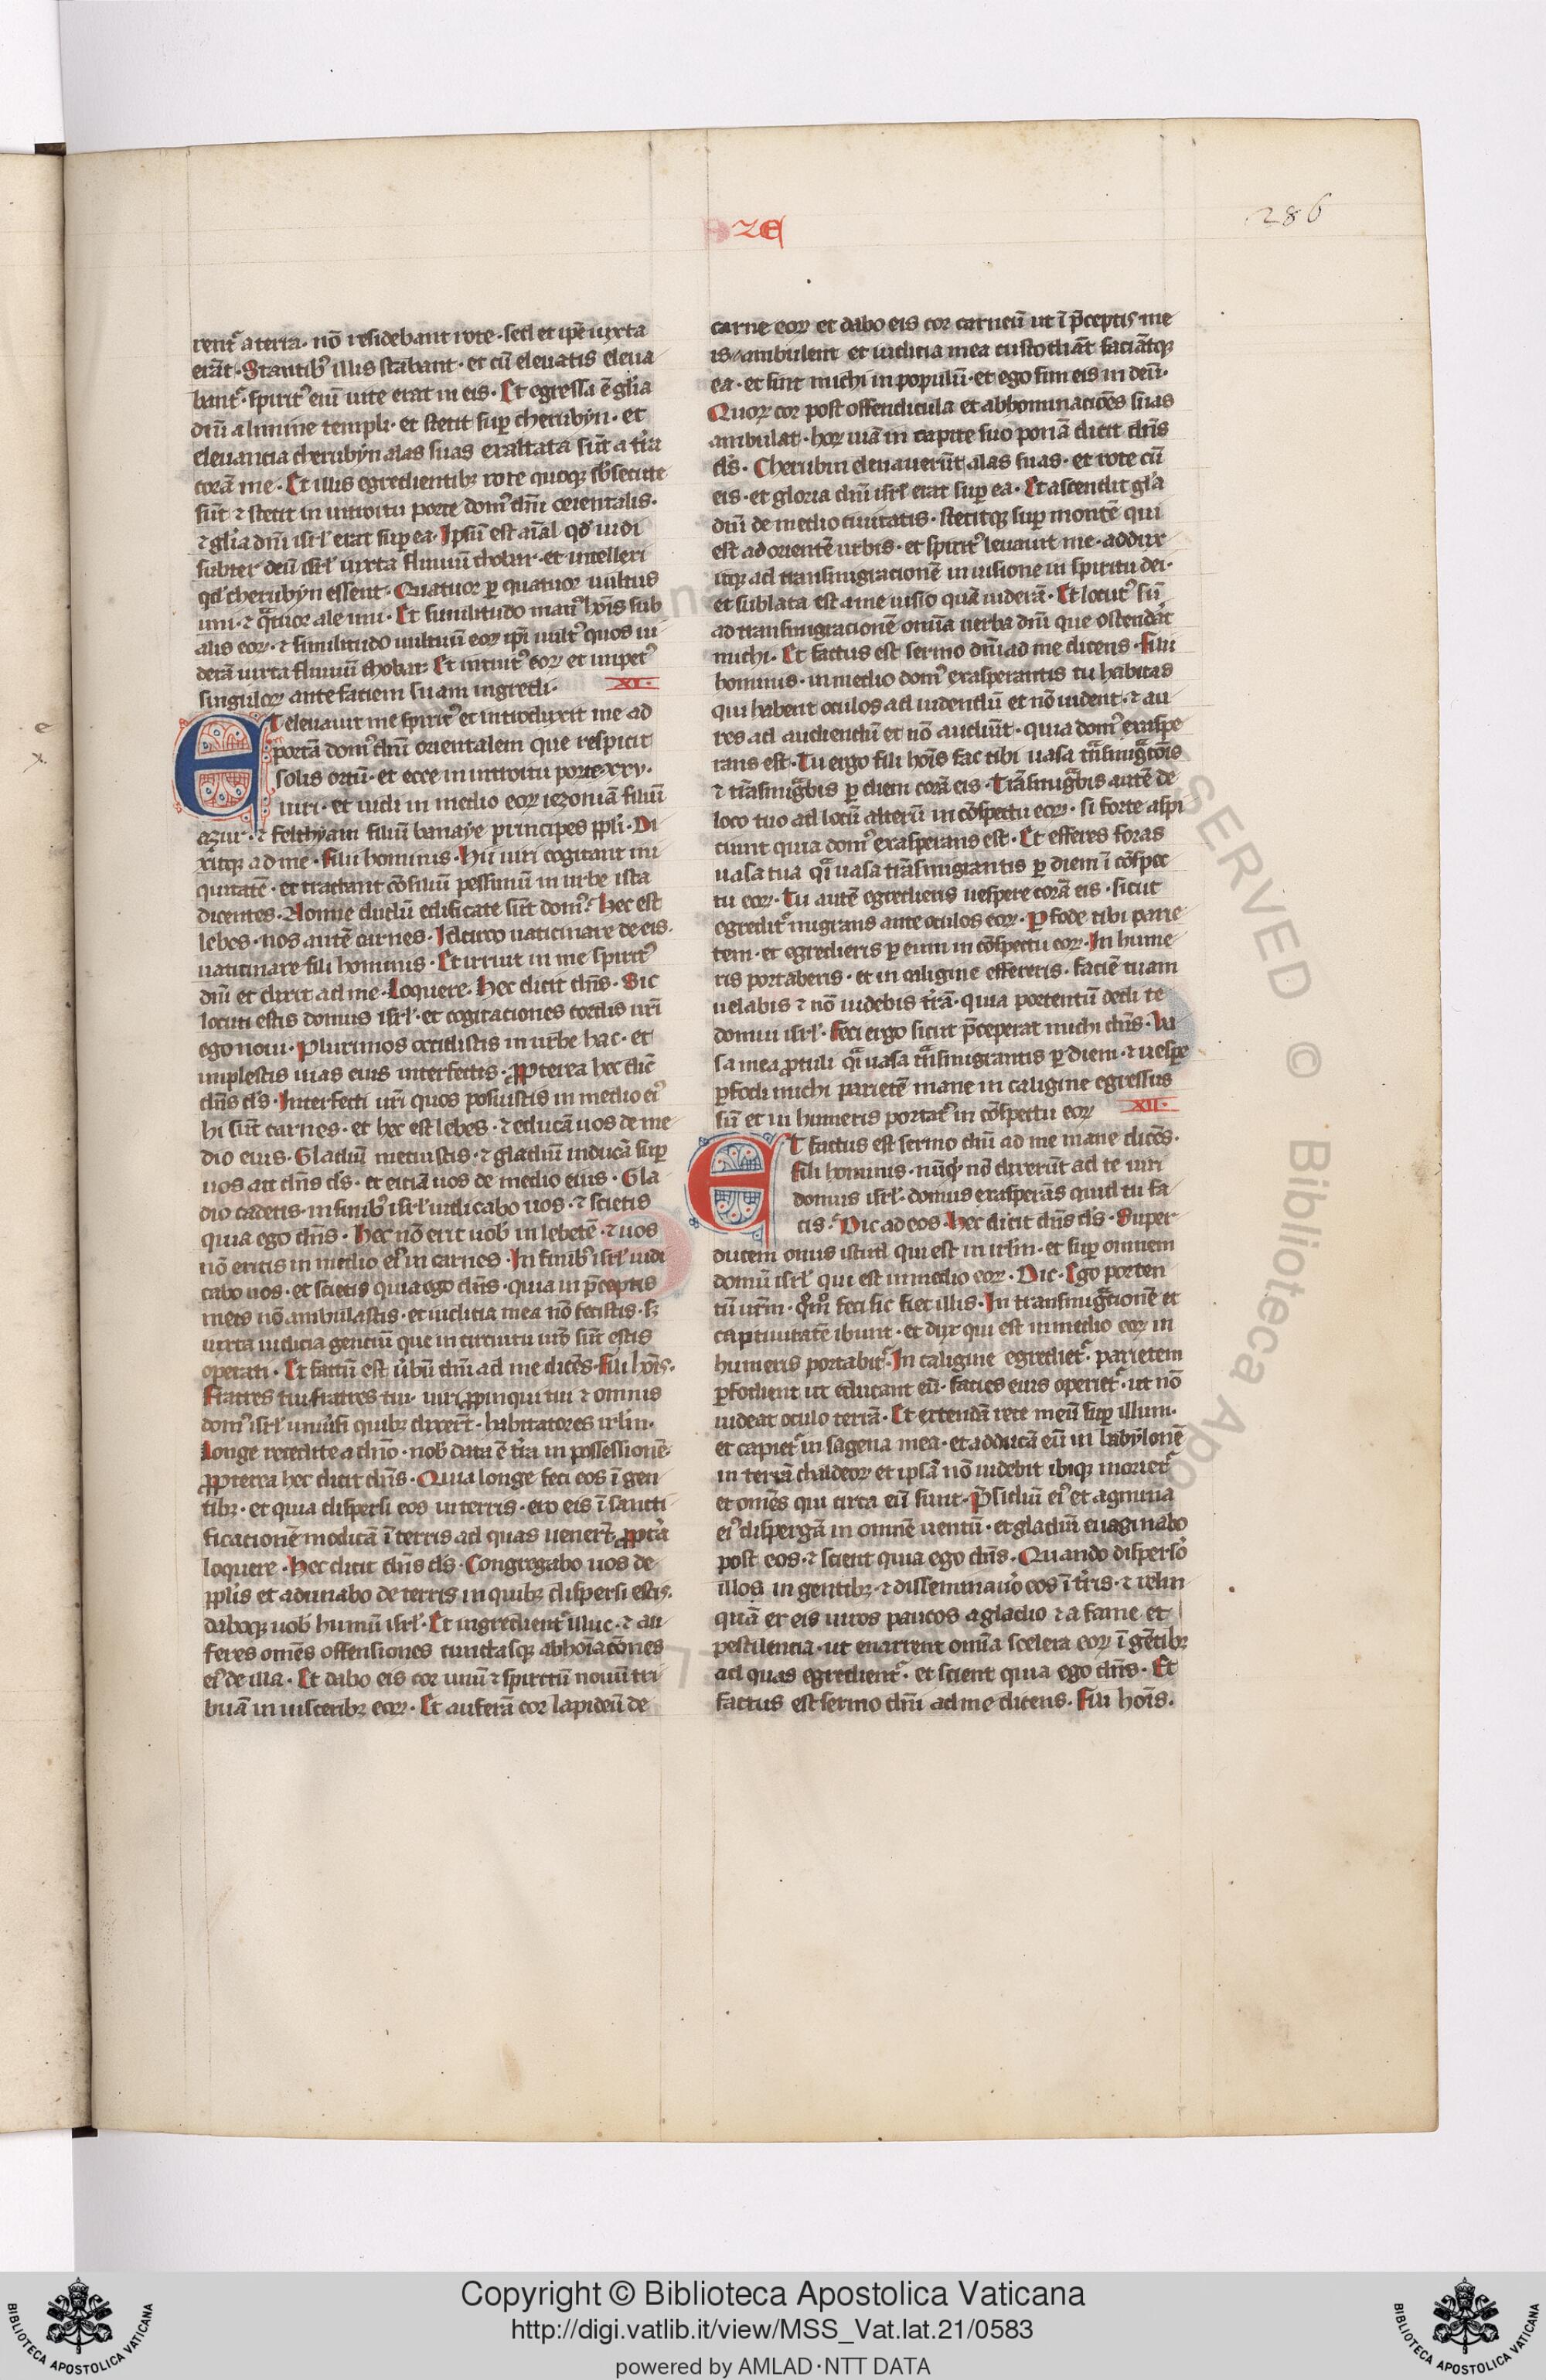 ZE
286
rent᷑ a terra· nō residebant rote· sed et ip̄e iuxta
erāt· Stantib᷒ illis stabant· et cū eleuatis eleua
bant᷑· spirit᷒ eni᷒ uite erat in eis· Et egressa ē gl̄ia
dn̄i a limine templi· et stetit sup̱ cherubyn· et
eleuancia cherubyn alas suas exaltata sūt a tr̄a
corā me· Et illis egredientibꝫ rote quoqꝫ sb̄secute
sūt ⁊ stetit in introitu porte dom᷒ dn̄i orientalis·
⁊ gl̄ia dn̄i isrl̄ erat sup̱ ea· Ip̄sū est aīal qd̄ uidi
subter deū isrl̄ iuxta fluuiū chobar· et intellexi
qd̄ cherubyn essent· Quatuor ꝑ quatuor uultus
uni· ⁊ qᷓtuor ale uni· Et similitudo man᷒ hōis sub
alis eoꝝ· ⁊ similitudo uultuū eoꝝ ip̄i uult᷒ quos ui
derā iuxta fluuiū chobar· Et intuit᷒ eoꝝ et impet᷒
singuloꝝ ante faciem suam ingredi· XI·
Et eleuauit me spirit᷒ et introduxit me ad
portā dom᷒ dn̄i orientalem que respicit
solis ortū· et ecce in introitu porte xxv·
uiri· et uidi in medio eoꝝ iezoniā filiū
azur· ⁊ felthyam filiū banaye principes ppl̄i· Di
xitqꝫ ad me· Fili hominis· Hii uiri cogitant ini
quitatē· et tractant cōsiliū pessimū in urbe ista
dicentes· Nonne dudū edificate sūt dom᷒? Hec est
lebes· nos autē carnes· Idcirco uaticinare de eis·
uaticinare fili hominis· Et irruit in me spirit᷒
dn̄i et dixit ad me· Loquere· Hec dicit dn̄s· Sic
locuti estis domus isrl̄· et cogitaciones cordis ur̄i
ego noui· Plurimos occidistis in urbe hac· et
implestis uias eius interfectis· Propterea hec dic̄
dn̄s d̄s· Interfecti ur̄i quos posuistis in medio ei᷒
hi sūt carnes· et hec est lebes· ⁊ educā uos de me
dio eius· Gladiū metuistis· ⁊ gladiū inducā sup̱
uos ait dn̄s d̄s· et eiciā uos de medio eius· Gla
dio cadetis· in finib᷒ isrl̄ iudicabo uos· ⁊ scietis
quia ego dn̄s· Hec nō erit uob̄ in lebetē· ⁊ uos
nō eritis in medio ei᷒ in carnes· In finib᷒ isrl̄ iudi
cabo uos· et scietis quia ego dn̄s· quia in p̄ceptis
meis nō ambulastis· et iudicia mea nō fecistis· sꝫ
iuxta iudicia genciū que in circuitu ur̄o sūt estis
operati· Et factū est u̇bū dn̄i ad me dicēs· Fili hōis·
Fratres tui fratres tui· uiri ꝓpinqui tui ⁊ omnis
dom᷒ isrl̄ uniu̇si quibꝫ dixer̄t· habitatores irl̄m·
Longe recedite a dn̄o· nob̄ data ē tr̄a in possessionē·
Propterea hec dicit dn̄s· Quia longe feci eos ī gen
tibꝫ· et quia dispersi eos in terris· ero eis ī sancti
ficationē modicā ī terris ad quas uener̄t· ꝓpt̄a
loquere· Hec dicit dn̄s d̄s· Congregabo uos de
ppl̄is et adunabo de terris in quibꝫ dispersi estis·
daboqꝫ uob̄ humū isrl̄· Et ingredient᷑ illuc· ⁊ au
feres omēs offensiones cunctasqꝫ abhoīatōnes
ei᷒ de illa· Et dabo eis cor unū ⁊ spiritū nouū tri
buā in uisceribꝫ eoꝝ· Et auferā cor lapideū de
carne eoꝝ et dabo eis cor carneū ut ī p̄ceptis me
is ambulent et iudicia mea custodiāt faciātqꝫ
ea· et sint michi in populū· et ego sim eis in deū·
Quoꝝ cor post offendicula et abbominaciōes suas
ambulat· hoꝝ uiā in capite suo ponā dicit dn̄s
d̄s· Cherubin eleuauerūt alas suas· et rote cū
eis· et gloria dn̄i isrl̄ erat sup̱ ea· Et ascendit gl̄a
dn̄i de medio ciuitatis· stetitqꝫ sup̱ montē qui
est ad orientē urbis· et spirit᷒ leuauit me· addux
itqꝫ ad transmigracionē in uisione in spiritu dei·
et sublata est a me uisio quā uiderā· Et locut᷒ sū
ad transmigracionē omīa uerba dn̄i que ostendāt
michi· Et factus est sermo dn̄i ad me dicens· Fili
hominis· in medio dom᷒ exasperantis tu habitas
qui habent oculos ad uidendū et nō uident· ⁊ au
res ad audiendū et nō audiūt· quia dom᷒ exaspe
rans est· Tu ergo fili hōis fac tibi uasa tᷓnsmigᷓtōis
⁊ trāsmigᷓbis ꝑ diem corā eis· Trāsmigᷓbis autē de
loco tuo ad locū alterū in cōspectu eoꝝ· si forte aspi
ciunt quia dom᷒ exasperans est· Et efferes foras
uasa tua qᷓi uasa trāsmigrantis ꝑ diem ī cōspec
tu eoꝝ· Tu autē egredieris uespere corā eis· sicut
egredit᷑ migrans ante oculos eoꝝ· Ꝑfode tibi parie
tem· et egredieris ꝑ eum in cōspectu eoꝝ· In hume
ris portaberis· et in caligine effereris· faciē tuam
uelabis ⁊ nō uidebis tr̄ā· quia portentū dedi te
domui isrl̄· Feci ergo sicut p̄ceperat michi dn̄s· Va
sa mea ꝓtuli qᷓi uasa tᷓnsmigrantis ꝑ diem· ⁊ uesꝑe
ꝑfodi michi parietē mane in caligine egressus
sū et in humeris portat᷒ in cōspectu eoꝝ XII·
Et factus est sermo dn̄i ad me mane dicēs·
fili hominis· nūqd̄ nō dixerūt ad te uiri
domus isrl̄· domus exasperās quid tu fa
cis· Dic ad eos· Hec dicit dn̄s d̄s· Super
ducem onus istud qui est in irl̄m· et sup̱ omnem
domū isrl̄ qui est in medio eoꝝ· Dic· Ego porten
tū ur̄m· qᵒmᵒ feci sic fiet illis· In transmigᷓtionē et
captiuitatē ibunt· et dux qui est in medio eoꝝ in
humeris portabit᷑· In caligine egrediet᷑· parietem
ꝑfodient ut educant eū· facies eius operiet᷑· ut nō
uideat oculo terrā· Et extendā rete meū sup̱ illum·
et capiet᷑ in sagena mea· et adducā eū in babylonē
in terrā chaldeoꝝ et ipsā nō uidebit ibiqꝫ moriet᷑
et omēs qui circa eū sunt· P̄sidiū ei᷒ et agmina
ei᷒ dispergā in omnē uentū· et gladiū euaginabo
post eos· ⁊ scient quia ego dn̄s· Quando disperso᷑
illos in gentibꝫ· ⁊ disseminauo᷑ eos ī tr̄is· ⁊ relin
quā ex eis uiros paucos a gladio ⁊ a fame et
pestilencia· ut enarrent omīa scelera eoꝝ ī gētibꝫ
ad quas egredient᷑· et scient quia ego dn̄s· Et
factus est sermo dn̄i ad me dicens· Fili hōis·
e
x
SERVED © Biblioteca Apo
Copyright © Biblioteca Apostolica Vaticana
http://digi.vatlib.it/view/MSS_Vat.lat.21/0583
powered by AMLAD·NTT DATA
BIBLIOTECA APOSTOLICA VATICANA
BIBLIOTECA APOSTOLICA VATICANA